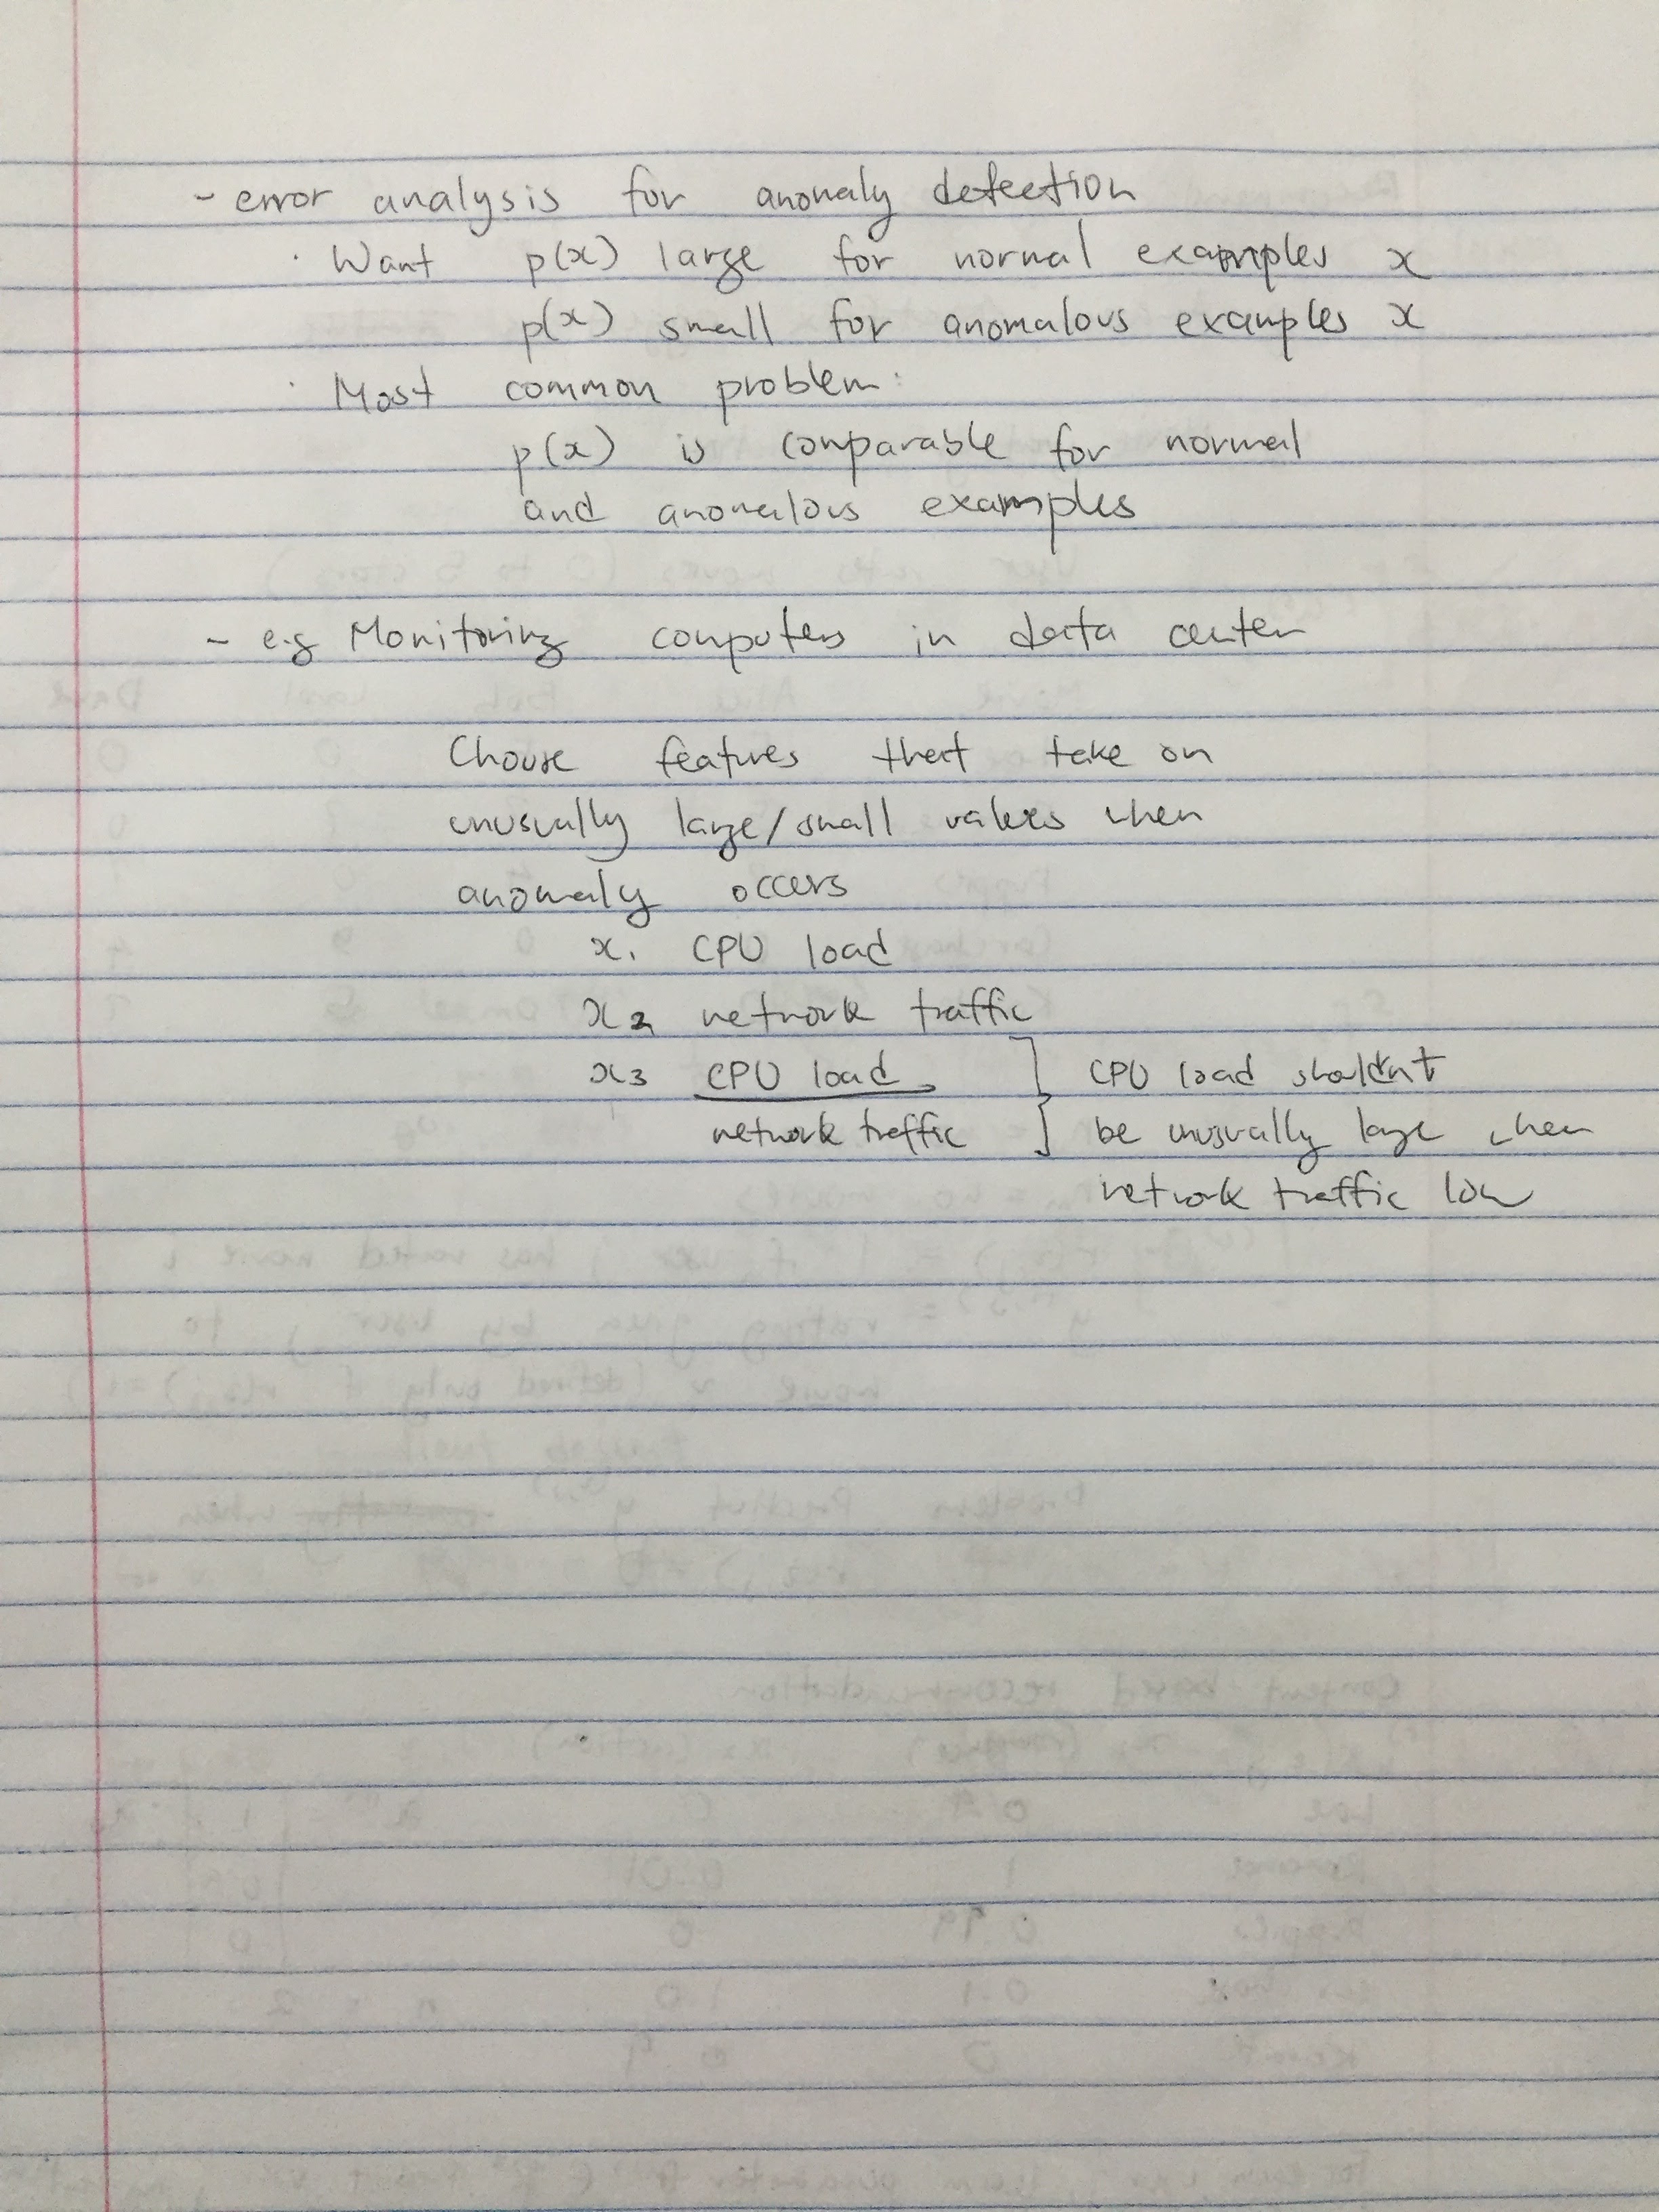 - error analysis for anomaly detection
· Want p(x) large for normal examples x
p(x) small for anomalous examples x
· Most common problem:
p(x) is comparable for normal
and anomalous examples
- e.g Monitoring computers in data center
Choose features that take on
unusually large/small values when
anomaly occurs
x₁ CPU load
x₂ network traffic
x₃ CPU load } CPU load shouldn't
network traffic be unusually large when
network traffic low